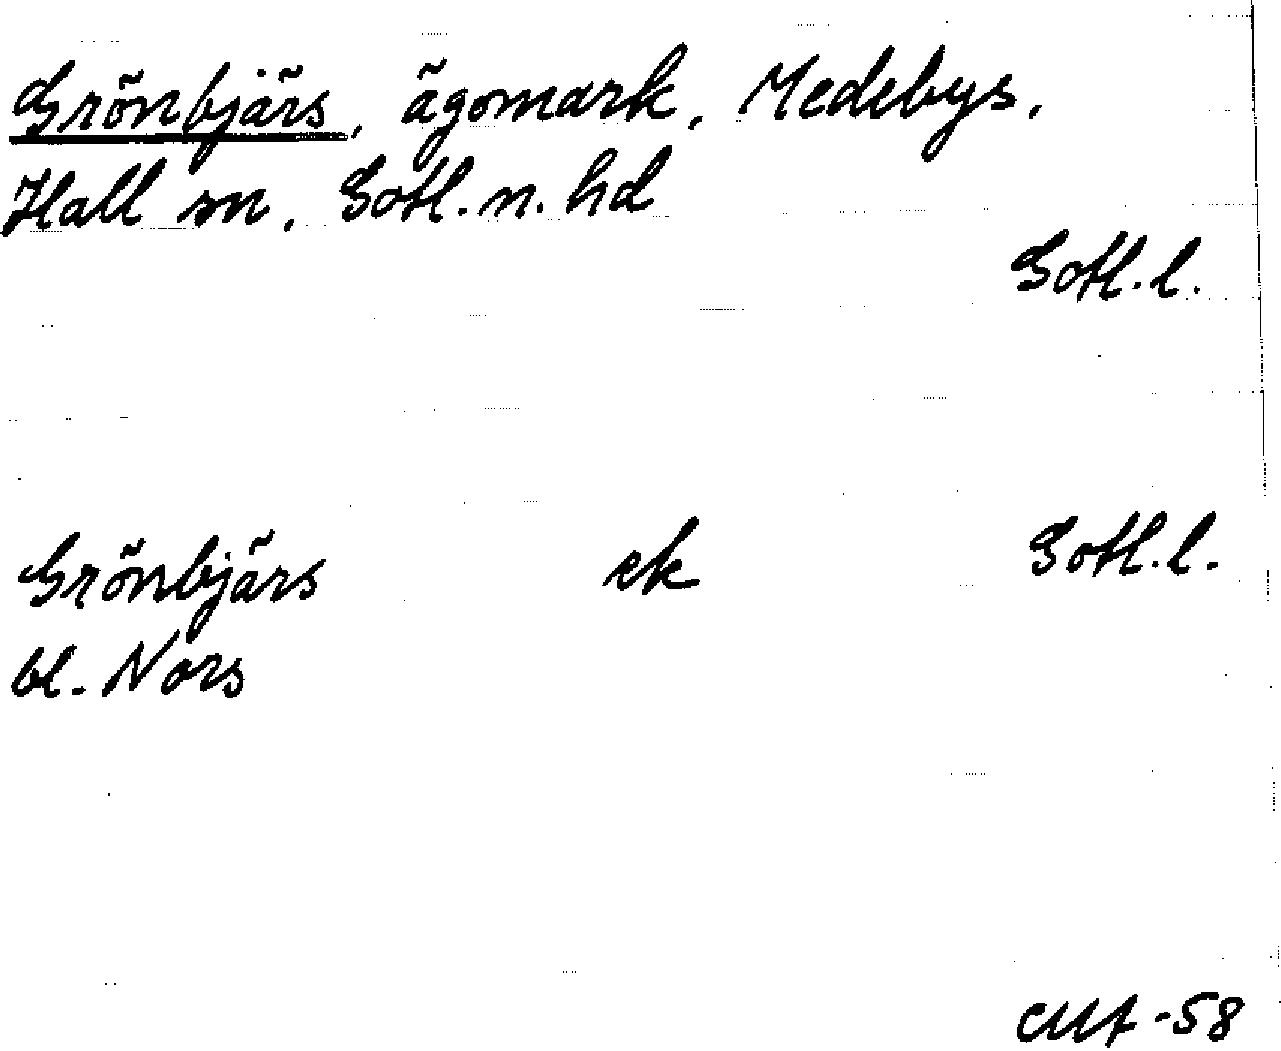 Grönbjärs, ägomark, Medebys.
Hall sn, Gotl. n. hd
Gotl. l.
Grönbjärs ek Gotl. l.
bl. Nors
-58